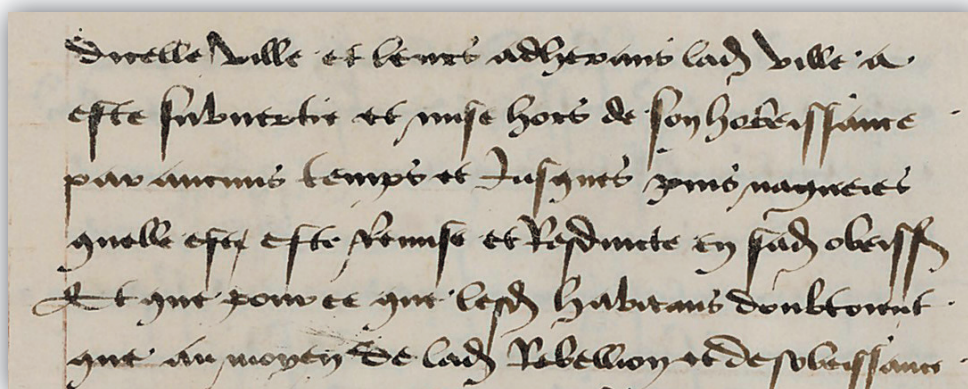 dicelle ville et leurs adherans lad ville a
este subvertie et mise hors de son hobeissance
par aucuns temps et Jusques puis nagueres
quelle est este Remise et Redduicte en sad obeiss
Et que pour ce que lesd habitans doubtoient
que au moyen de lad Rebellion et desobeissance